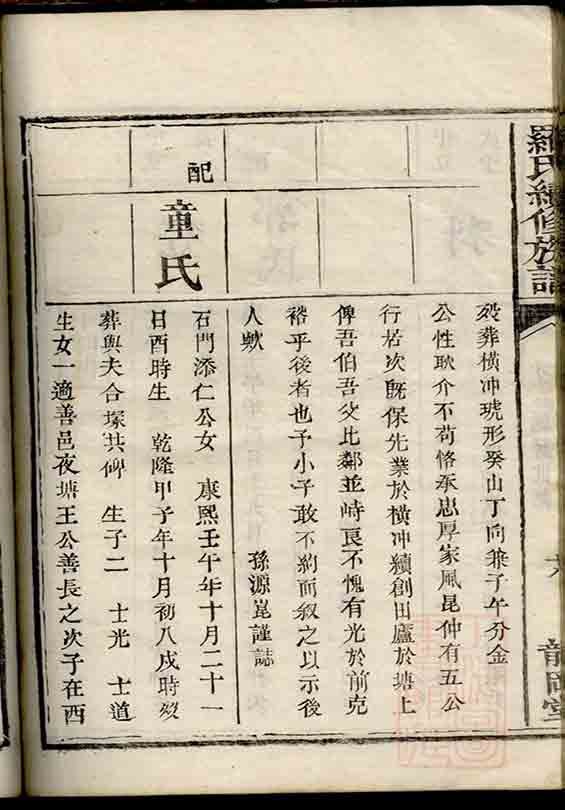 羅氏續修族譜
六
殁葬橫冲琥形癸山丁向兼子午分金
公性耿介不苟恪承忠厚家風昆仲有五公
行若次既保先業於橫冲續創田廬於塘上
俾吾伯吾父比鄰並峙良不愧有光於前克
裕乎後者也予小子敢不約而叙之以示後
人歟
孫源崑謹誌
配
童氏
石門添仁公女 康熙壬午年十月二十一
日酉時生 乾隆甲子年十月初八戌時殁
葬與夫合塚共碑 生子二 士光 士道
生女一適善邑夜塘王公善長之次子在西